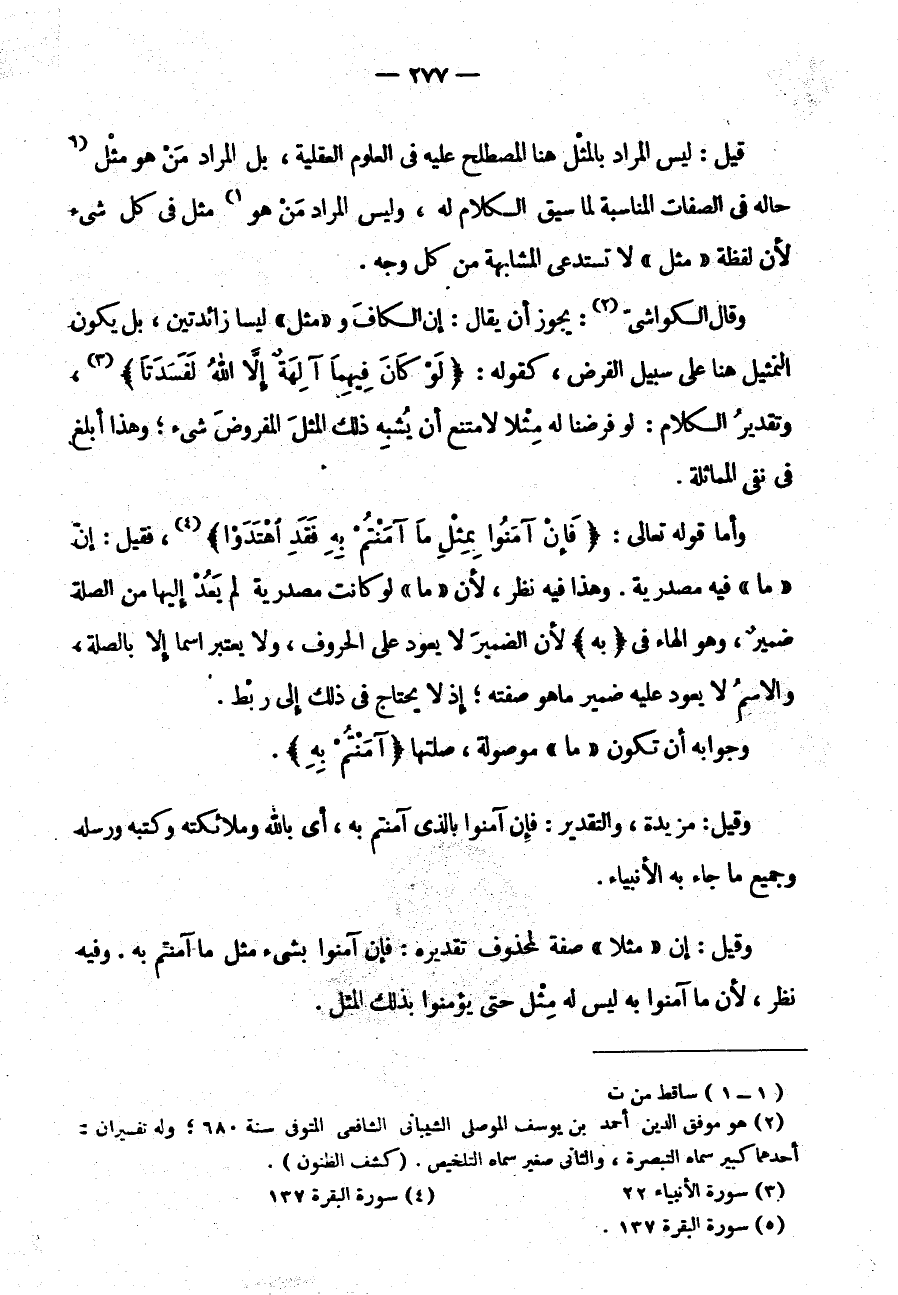 — ٢٧٧ —
قيل : ليس المراد بالمثْل هنا المصطلح عليه فى العلوم العقلية ، بل المراد مَنْ هو مثْل (٦
حاله فى الصفات المناسبة لما سيق الكلام له ، وليس المراد مَنْ هو ١) مثل فى كل شىء
لأن لفظة « مثل » لا تستدعى المشابهة من كل وجه .
وقال الكواشىّ (٢) : يجوز أن يقال : إن الكافَ و « مثل » ليسا زائدتين ، بل يكون
التمثيل هنا على سبيل الفرض ، كقوله : ﴿ لَوْ كَانَ فِيهِمَا آلِهَةٌ إِلَّا اللهُ لَفَسَدَتَا ﴾ (٣) ،
وتقديرُ الكلام : لو فرضنا له مِثْلا لامتنع أن يُشبِه ذلك المثلَ المفروضَ شىء ؛ وهذا أبلغ
فى نفى المماثلة .
وأما قوله تعالى : ﴿ فَإِنْ آمَنُوا بِمِثْلِ مَا آمَنْتُمْ بِهِ فَقَدِ ٱهْتَدَوْا ﴾ (٤) ، فقيل : إنّ
« ما » فيه مصدرية . وهذا فيه نظر ، لأن « ما » لو كانت مصدرية لم يَعُدْ إليها من الصلة
ضميرٌ ، وهو الهاء فى ﴿ به ﴾ لأن الضميرَ لا يعود على الحروف ، ولا يعتبر اسما إلا بالصلة ،
والاسمُ لا يعود عليه ضمير ماهو صفته ؛ إذ لا يحتاج فى ذلك إلى ربْط .
وجوابه أن تكون « ما » موصولة ، صلتها ﴿ آمَنْتُمْ بِهِ ﴾ .
وقيل : مزيدة ، والتقدير : فإن آمنوا بالذى آمنتم به ، أى بالله وملائكته وكتبه ورسله
وجميع ما جاء به الأنبياء .
وقيل : إن « مثلا » صفة لمحذوف تقديره : فإن آمنوا بشىء مثل ما آمنتم به . وفيه
نظر ، لأن ما آمنوا به ليس له مِثْل حتى يؤمنوا بذلك المثل .
( ١ – ١ ) ساقط من ت
(٢) هو موفق الدين أحمد بن يوسف الموصلى الشيبانى الشافعى المتوفى سنة ٦٨٠ ؛ وله تفسيران :
أحدهما كبير سماه التبصرة ، والثانى صغير سماه التلخيص . ( كشف الظنون ) .
(٣) سورة الأنبياء ٢٢ (٤) سورة البقرة ١٣٧
(٥) سورة البقرة ١٣٧ .